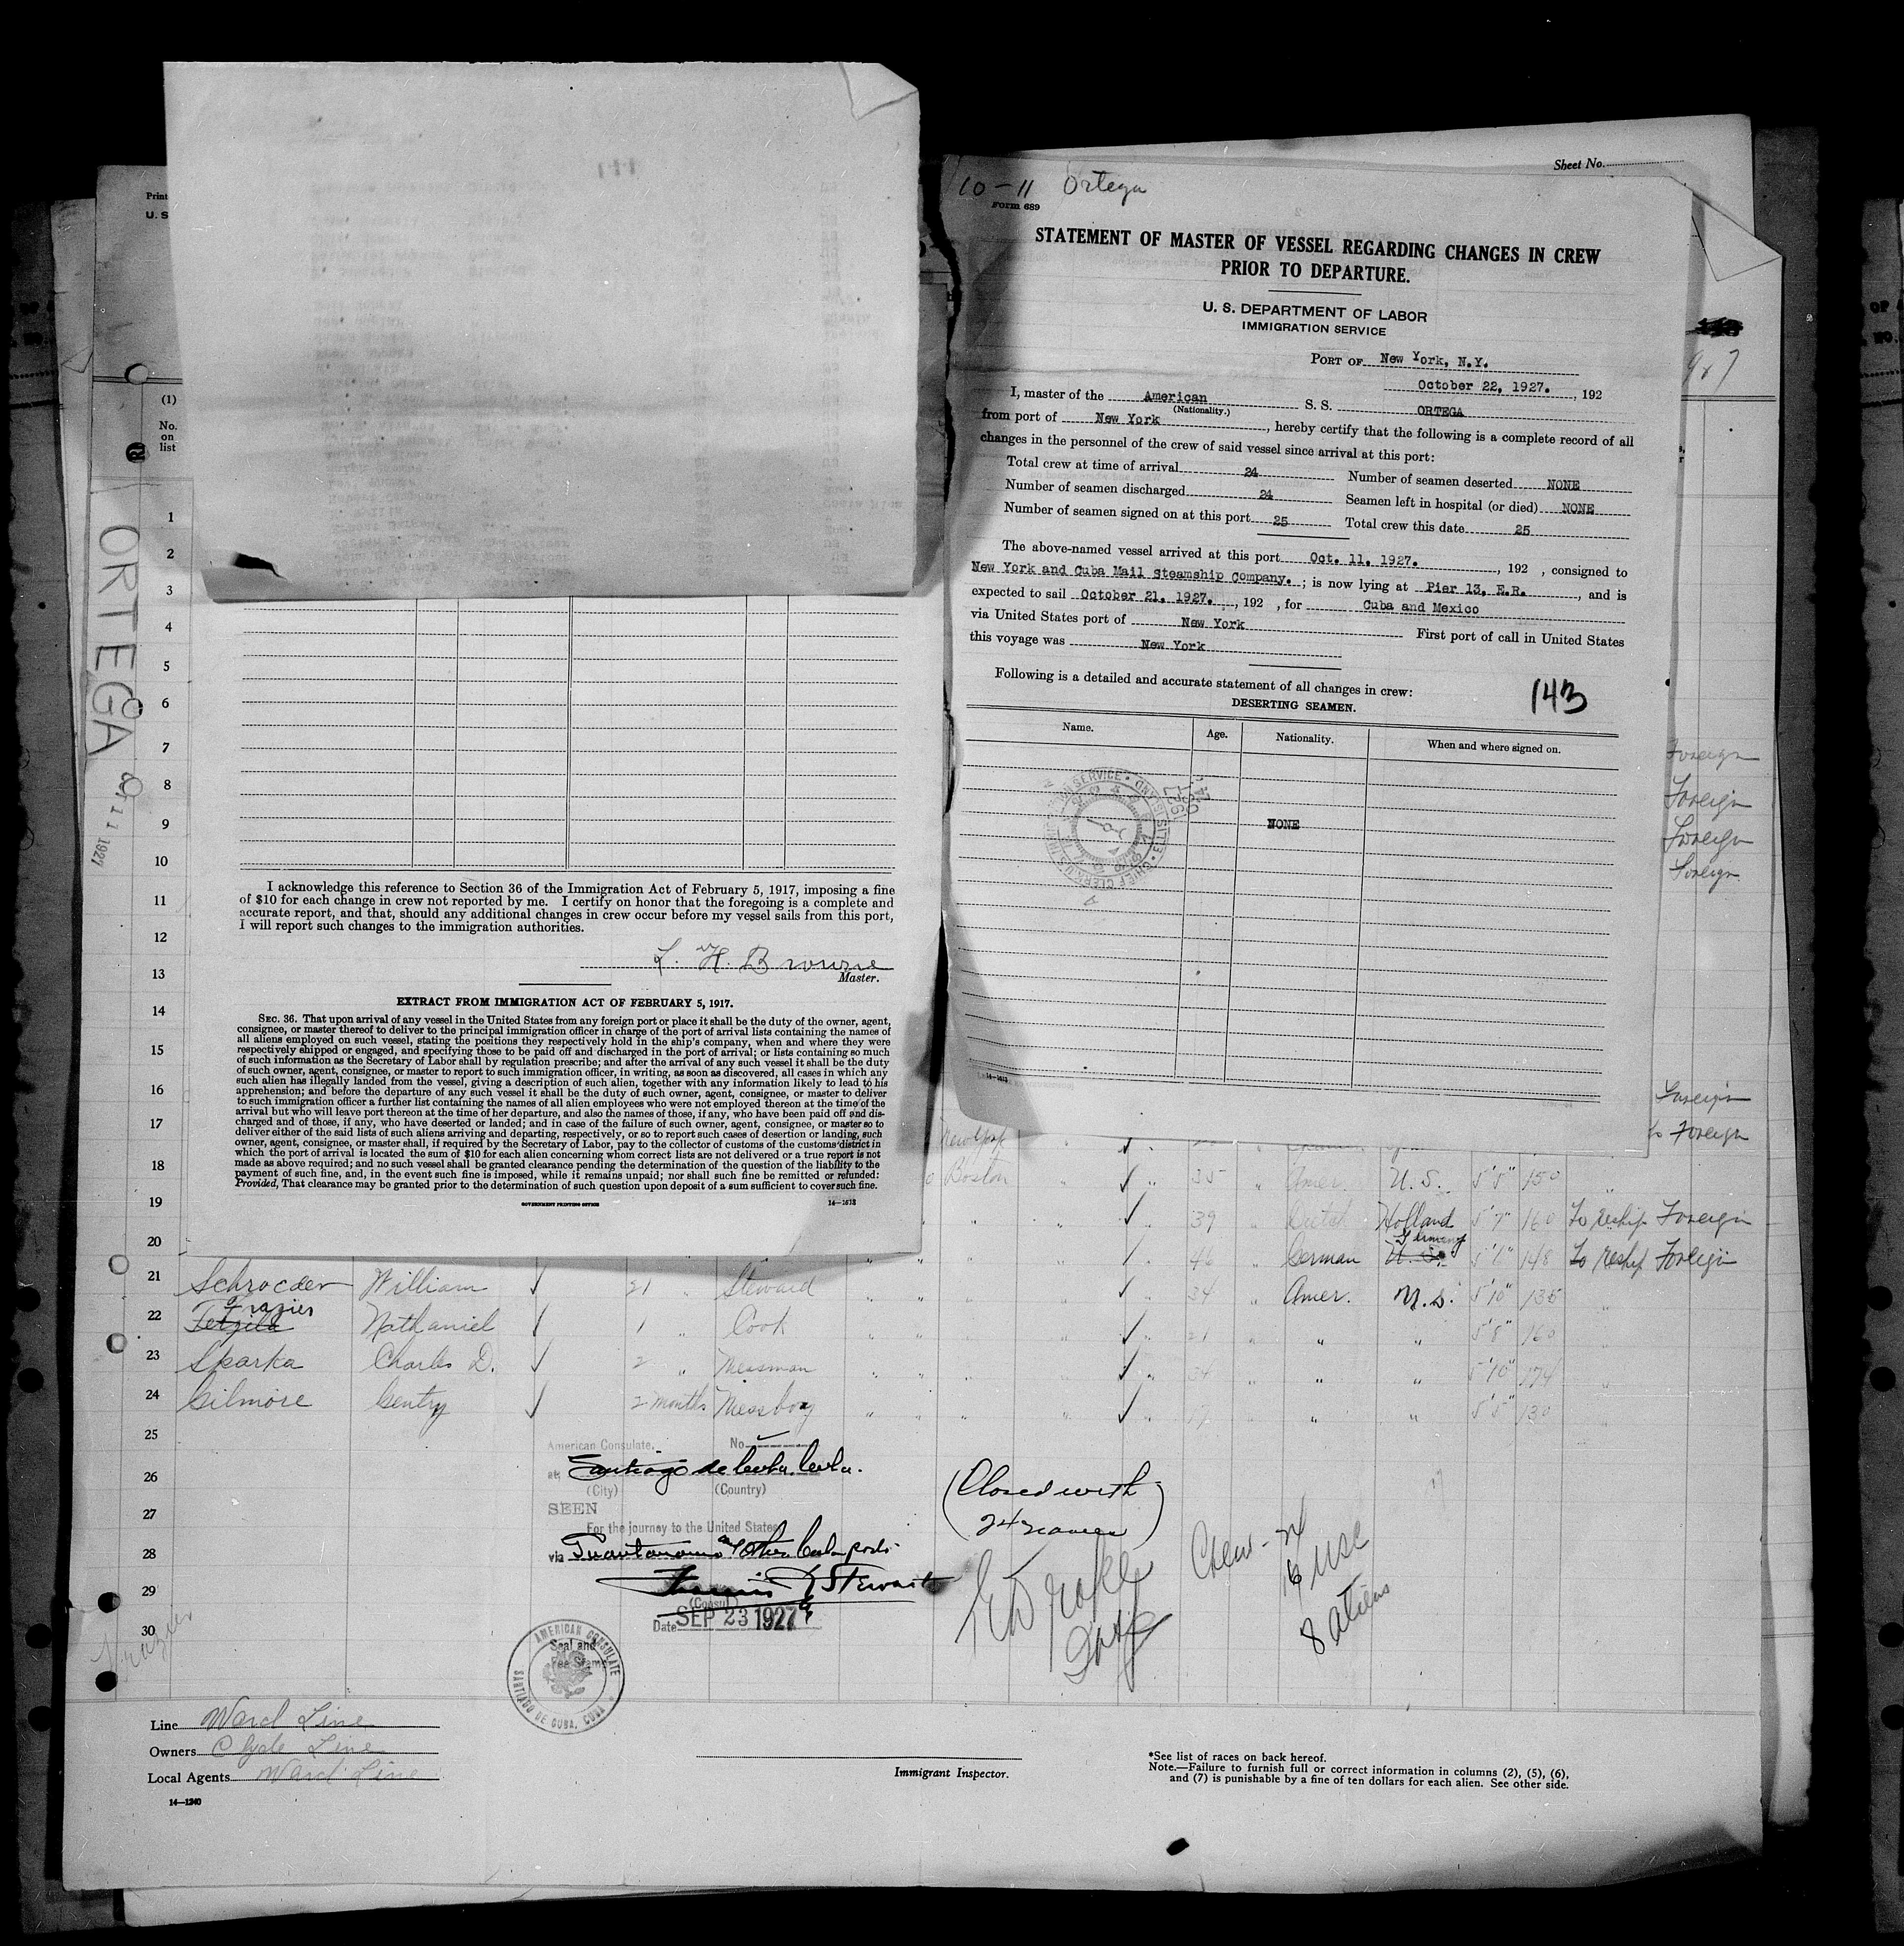 Sheet No.
10-11 Ortega
Form 689
STATEMENT OF MASTER OF VESSEL REGARDING CHANGES IN CREW
PRIOR TO DEPARTURE.
U. S. DEPARTMENT OF LABOR
IMMIGRATION SERVICE
PORT OF New York, N.Y.
October 22, 1927. , 192
I, master of the American S. S. ORTEGA
(Nationality.)
from port of New York , hereby certify that the following is a complete record of all
changes in the personnel of the crew of said vessel since arrival at this port:
Total crew at time of arrival 24 Number of seamen deserted NONE
Number of seamen discharged 24 Seamen left in hospital (or died) NONE
Number of seamen signed on at this port 25 Total crew this date 25
The above-named vessel arrived at this port Oct. 11, 1927. , 192 , consigned to
New York and Cuba Mail Steamship Company. ; is now lying at Pier 13, E.R. , and is
expected to sail October 21, 1927. , 192 , for Cuba and Mexico
via United States port of New York First port of call in United States
this voyage was New York
Following is a detailed and accurate statement of all changes in crew:
143
DESERTING SEAMEN.
Name. Age. Nationality. When and where signed on.
NONE
Foreign
Foreign
Foreign
Foreign
Foreign
to Foreign
Print
U. S
(1)
No.
on
list
ORTEGA
OCT 11 1927
1
2
3
4
5
6
7
8
9
10
11
12
13
14
15
16
17
18
19
20
I acknowledge this reference to Section 36 of the Immigration Act of February 5, 1917, imposing a fine
of $10 for each change in crew not reported by me. I certify on honor that the foregoing is a complete and
accurate report, and that, should any additional changes in crew occur before my vessel sails from this port,
I will report such changes to the immigration authorities.
L. H. Browne
Master.
EXTRACT FROM IMMIGRATION ACT OF FEBRUARY 5, 1917.
SEC. 36. That upon arrival of any vessel in the United States from any foreign port or place it shall be the duty of the owner, agent,
consignee, or master thereof to deliver to the principal immigration officer in charge of the port of arrival lists containing the names of
all aliens employed on such vessel, stating the positions they respectively hold in the ship's company, when and where they were
respectively shipped or engaged, and specifying those to be paid off and discharged in the port of arrival; or lists containing so much
of such information as the Secretary of Labor shall by regulation prescribe; and after the arrival of any such vessel it shall be the duty
of such owner, agent, consignee, or master to report to such immigration officer, in writing, as soon as discovered, all cases in which any
such alien has illegally landed from the vessel, giving a description of such alien, together with any information likely to lead to his
apprehension; and before the departure of any such vessel it shall be the duty of such owner, agent, consignee, or master to deliver
to such immigration officer a further list containing the names of all alien employees who were not employed thereon at the time of the
arrival but who will leave port thereon at the time of her departure, and also the names of those, if any, who have been paid off and dis-
charged and of those, if any, who have deserted or landed; and in case of the failure of such owner, agent, consignee, or master so to
deliver either of the said lists of such aliens arriving and departing, respectively, or so to report such cases of desertion or landing, such
owner, agent, consignee, or master shall, if required by the Secretary of Labor, pay to the collector of customs of the customs district in
which the port of arrival is located the sum of $10 for each alien concerning whom correct lists are not delivered or a true report is not
made as above required; and no such vessel shall be granted clearance pending the determination of the question of the liability to the
payment of such fine, and, in the event such fine is imposed, while it remains unpaid; nor shall such fine be remitted or refunded:
Provided, That clearance may be granted prior to the determination of such question upon deposit of a sum sufficient to cover such fine.
GOVERNMENT PRINTING OFFICE 14-1613
New York
Boston 35 Amer. U. S. 5'5" 150
39 Dutch Holland 5'7" 160 To reship Foreign
46 German U. S. Germany 5'6" 148 To reship Foreign
21 Schroeder William 21 " Steward 34 Amer. U. S. 5'10" 135
22 Frazier Nathaniel 1 " Cook 21 " " 5'8" 160
23 Sparka Charles D. 2 " Messman 34 " " 5'10" 174
24 Gilmore Gentry 2 months Messboy 17 " " 5'5" 130
25
26
27
28
29
30
American Consulate, No.
at Santiago de Cuba, Cuba.
(City) (Country)
SEEN
For the journey to the United States
via Guantanamo & other Cuban ports
Francis R Stewart
(Consul)
Date SEP 23 1927
Seal and
Fee Stamp
AMERICAN CONSULATE
SANTIAGO DE CUBA, CUBA
(Closed with
24 names)
Crew - 24
16 USC
8 aliens
Frazier
Line Ward Line
Owners Clyde Line
Local Agents Ward Line
14-1240
Immigrant Inspector.
*See list of races on back hereof.
Note.—Failure to furnish full or correct information in columns (2), (5), (6),
and (7) is punishable by a fine of ten dollars for each alien. See other side.